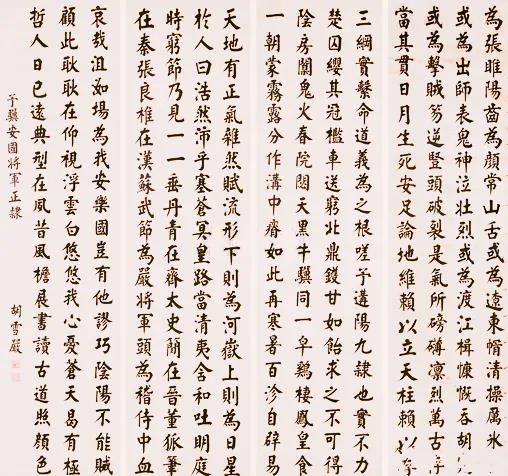 為張睢陽齒為顏常山舌或為遼東帽清操厲冰
或為出師表鬼神泣壯烈或為渡江楫慷慨吞胡
或為擊賊笏逆豎頭破裂是氣所磅礡凛烈萬古
當其貫日月生死安足論地維賴以立天柱賴以
三綱實繫命道義為之根嗟予遘陽九隸也實不力
楚囚纓其冠檻車送窮北鼎鑊甘如飴求之不可得
陰房闃鬼火春院閟天黑牛驥同一皁鷄棲鳳皇食
一朝蒙霧露分作溝中瘠如此再寒暑百沴自辟易
天地有正氣雜然賦流形下則為河嶽上則為日星
於人曰浩然沛乎塞蒼冥皇路當清夷含和吐明庭
時窮節乃見一一垂丹青在齊太史簡在晉董狐筆
在秦張良椎在漢蘇武節為嚴將軍頭為稽侍中血
哀哉沮如場為我安樂國豈有他謬巧陰陽不能賊
顧此耿耿在仰視浮雲白悠悠我心憂蒼天曷有極
哲人日已遠典型在夙昔風檐展書讀古道照顏色
予驥安國將軍正隸
胡雪嚴